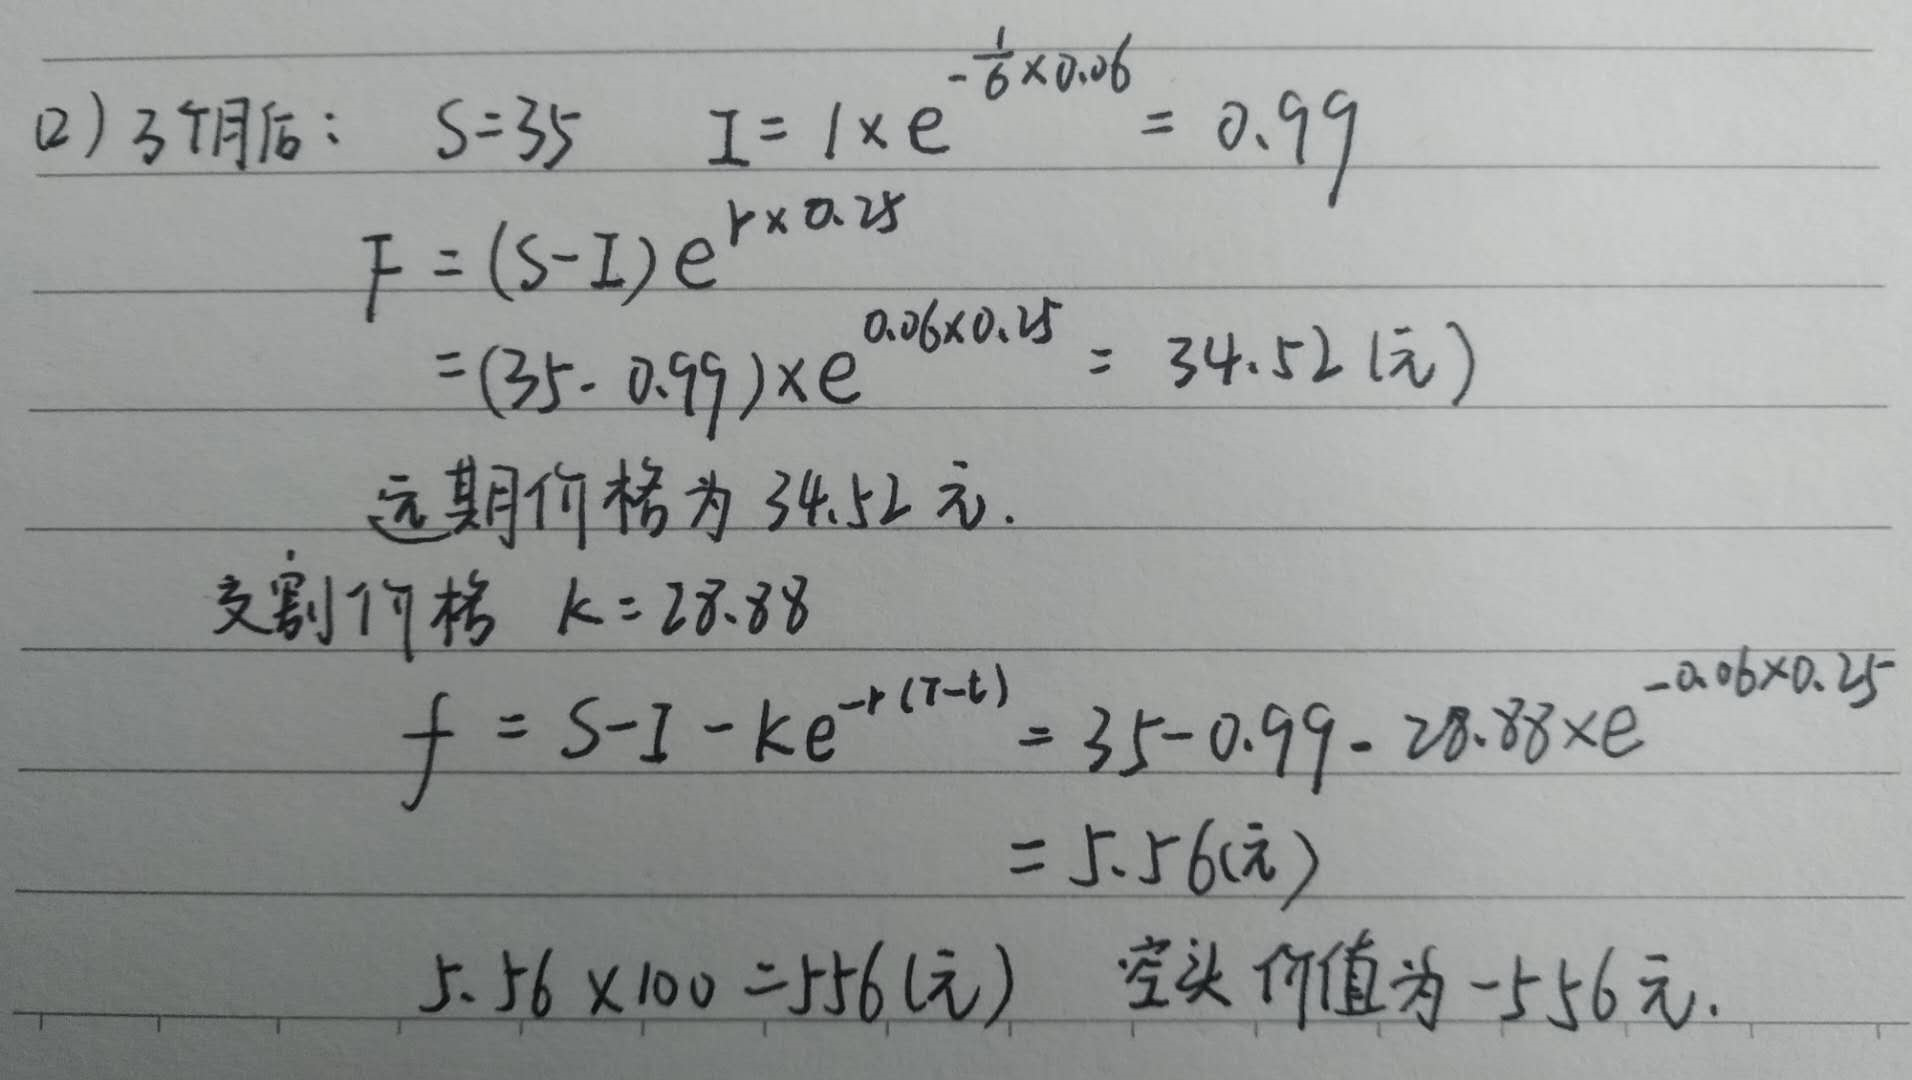 (2) 3个月后： S=35 I=1×e^{-\frac{1}{6}×0.06}=0.99
F=(S-I)e^{r×0.25}
=(35-0.99)×e^{0.06×0.25}=34.52(元)
远期价格为34.52元.
交割价格 K=28.88
f=S-I-Ke^{-r(T-t)}=35-0.99-28.88×e^{-0.06×0.25}
=5.56(元)
5.56×100=556(元) 空头价值为-556元.